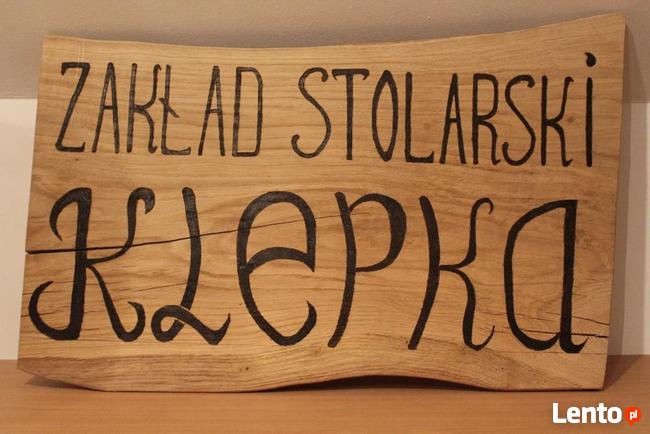 ZAKŁAD STOLARSKi
KLEPKA
Lento.pl